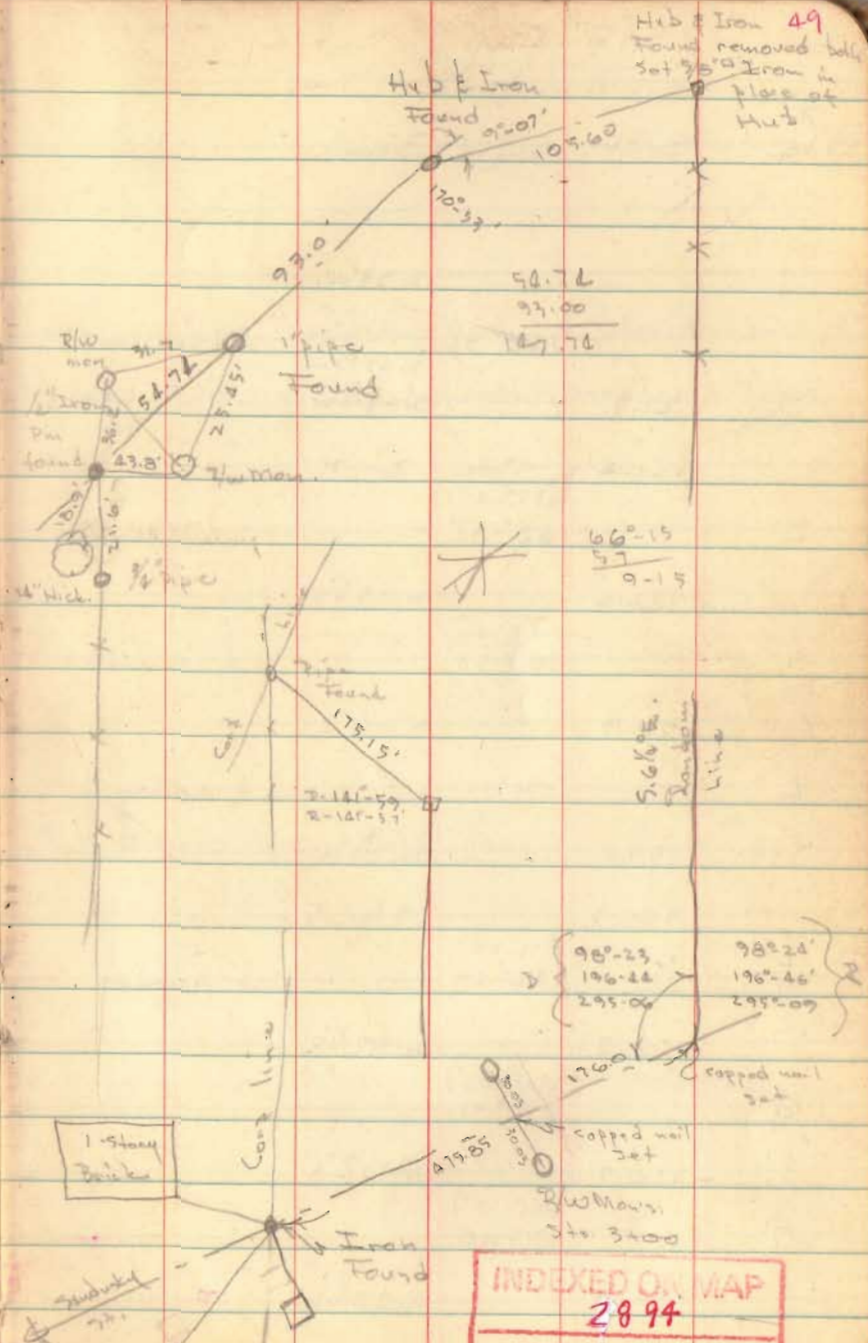 49
Hub & Iron
Found removed both
Set 5/8" Iron in
place of
Hub
Hub & Iron
Found
9°-07'
105.60
170°-53'
93.0'
54.74
93.00
147.74
R/W
mon
31.7
54.74
25.45'
1" pipe
Found
1/2" Iron
Pin
found
36.2
43.8'
R/W Mon.
18.9'
21.6'
14" Hick.
3/4" Pipe
66°-15
57
9-15
Line
Corp
Pipe
Found
175.15'
D-141°-59'
R-141°-57'
S.6¼°E.
Random
Line
D
98°-23
196-44
295-06
98°24'
196°-46'
295°-09
R
176.0
capped nail
set
30.05
30.05
capped nail
set
479.85
R/W Mon's.
Sta. 3+00
Corp line
1-Story
Brick
Iron
Found
Sandusky
St.
INDEXED ON MAP
2894